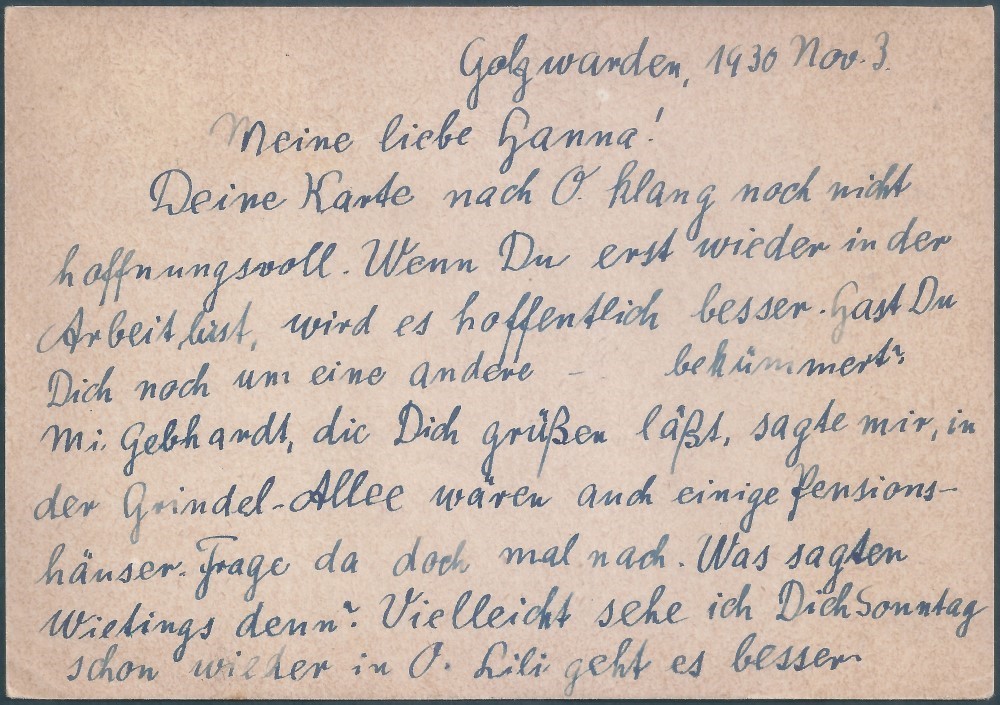 Golzwarden, 1930 Nov. 3.
Meine liebe Hanna!
Deine Karte nach O. klang noch nicht
hoffnungsvoll. Wenn Du erst wieder in der
Arbeit bist, wird es hoffentlich besser. Hast Du
Dich noch um eine andere – bekümmert?
Mi. Gebhardt, die Dich grüßen läßt, sagte mir, in
der Grindel-Allee wären auch einige Pensions-
häuser. Frage da doch mal nach. Was sagten
Wietings denn? Vielleicht sehe ich Dich Sonntag
schon wieder in O. Lili geht es besser.